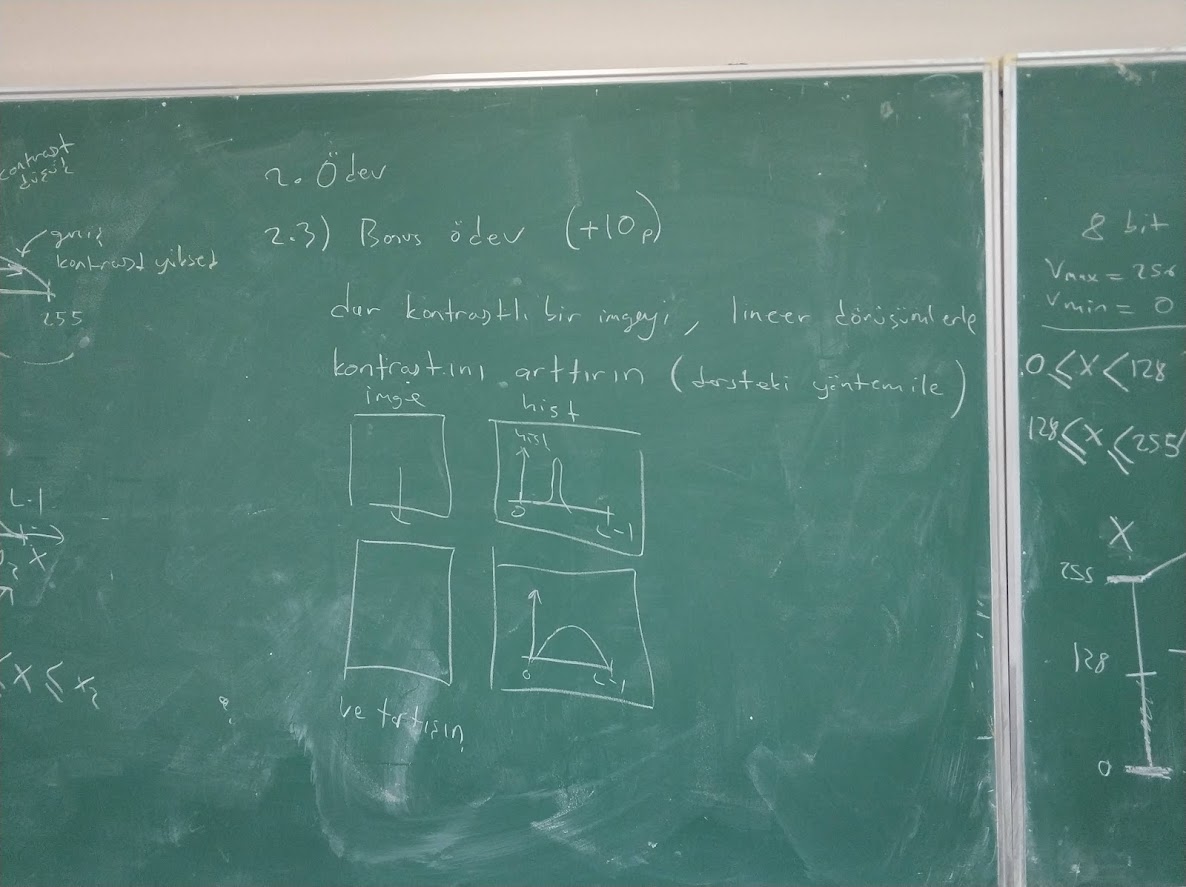 kontrast
düşük
giriş
kontrast yüksek
255
L-1
X
≤ X ≤ x₂
2. Ödev
2.3) Bonus ödev (+10p)
dar kontrastlı bir imgeyi, lineer dönüşümlerle
kontrastını arttırın (dersteki yöntem ile)
imge hist
hist
0 L-1
0 L-1
ve tartışın
8 bit
Vmax = 256
Vmin = 0
0 ≤ X < 128
128 ≤ X ≤ 255
X
255
128
0